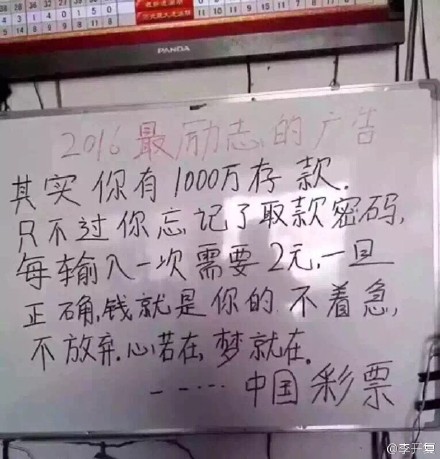 PANDA
2016最励志的广告
其实你有1000万存款.
只不过你忘记了取款密码,
每输入一次需要2元,一旦
正确,钱就是你的 不着急,
不放弃.心若在,梦就在.
-----中国彩票
@李开复